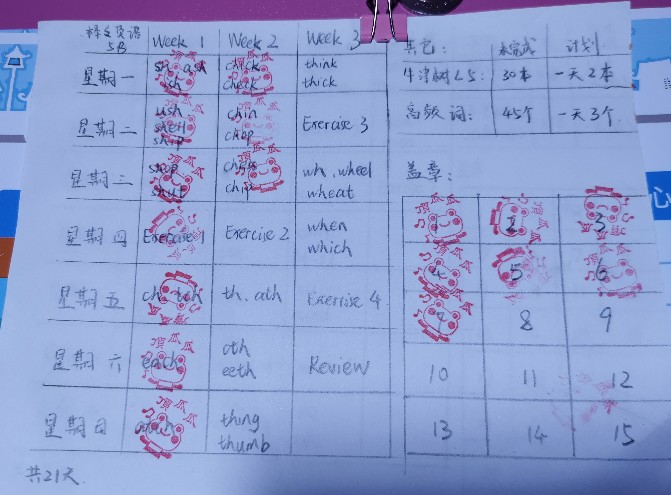 样文英语 5B Week 1 Week 2 Week 3
星期一 sh ash ish chick check think thick
星期二 ush shell ship chin chop Exercise 3
星期三 shop shut chip wh, wheel wheat
星期四 Exercise 1 Exercise 2 when which
星期五 ch, tch th, ath Exercise 4
星期六 each oth eeth Review
星期日 thing thumb
共21天
其它: 未完成 计划
牛津树L5: 30本 一天2本
高频词: 45个 一天3个
盖章:
1 2 3
4 5 6
7 8 9
10 11 12
13 14 15
顶瓜瓜